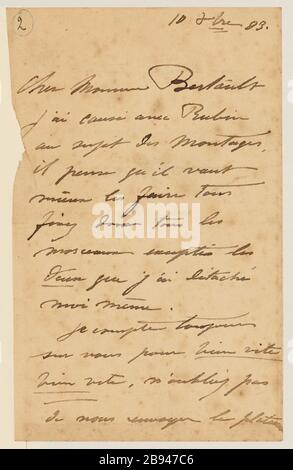 2
10 xbre 83.
Cher Monsieur Bertault
J'ai causé avec Rubin
au sujet des Montages,
il pense qu'il vaut
mieux les faire tous
fixes dans tous les
morceaux exceptés les
deux que j'ai détaché
moi même.
Je compte toujours
sur vous pour bien vite
bien vite, n'oubliez pas
de nous renvoyer le plâtre
alamy
Image ID: 2B947C6
www.alamy.com